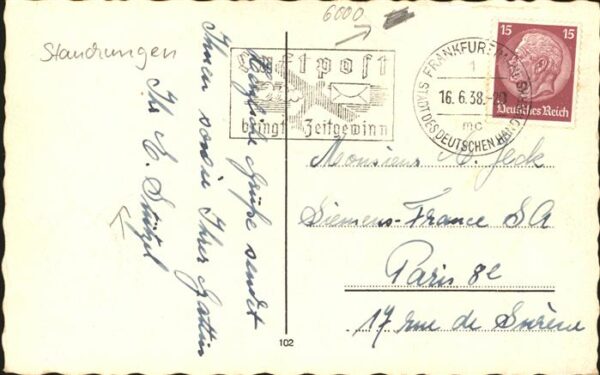 6000
Standrungen
Luftpost
bringt Zeitgewinn
FRANKFURT
1
16.6.38.-20
mc
STADT DES DEUTSCHEN HAND
15 15
Deutsches Reich
Herzliche Grüße sendet
Ihnen sowie Ihrer Gattin
Ihr E. Stützel
Monsieur A. Jeck
Siemens-France SA
Paris 8e
17 rue de Surène
102